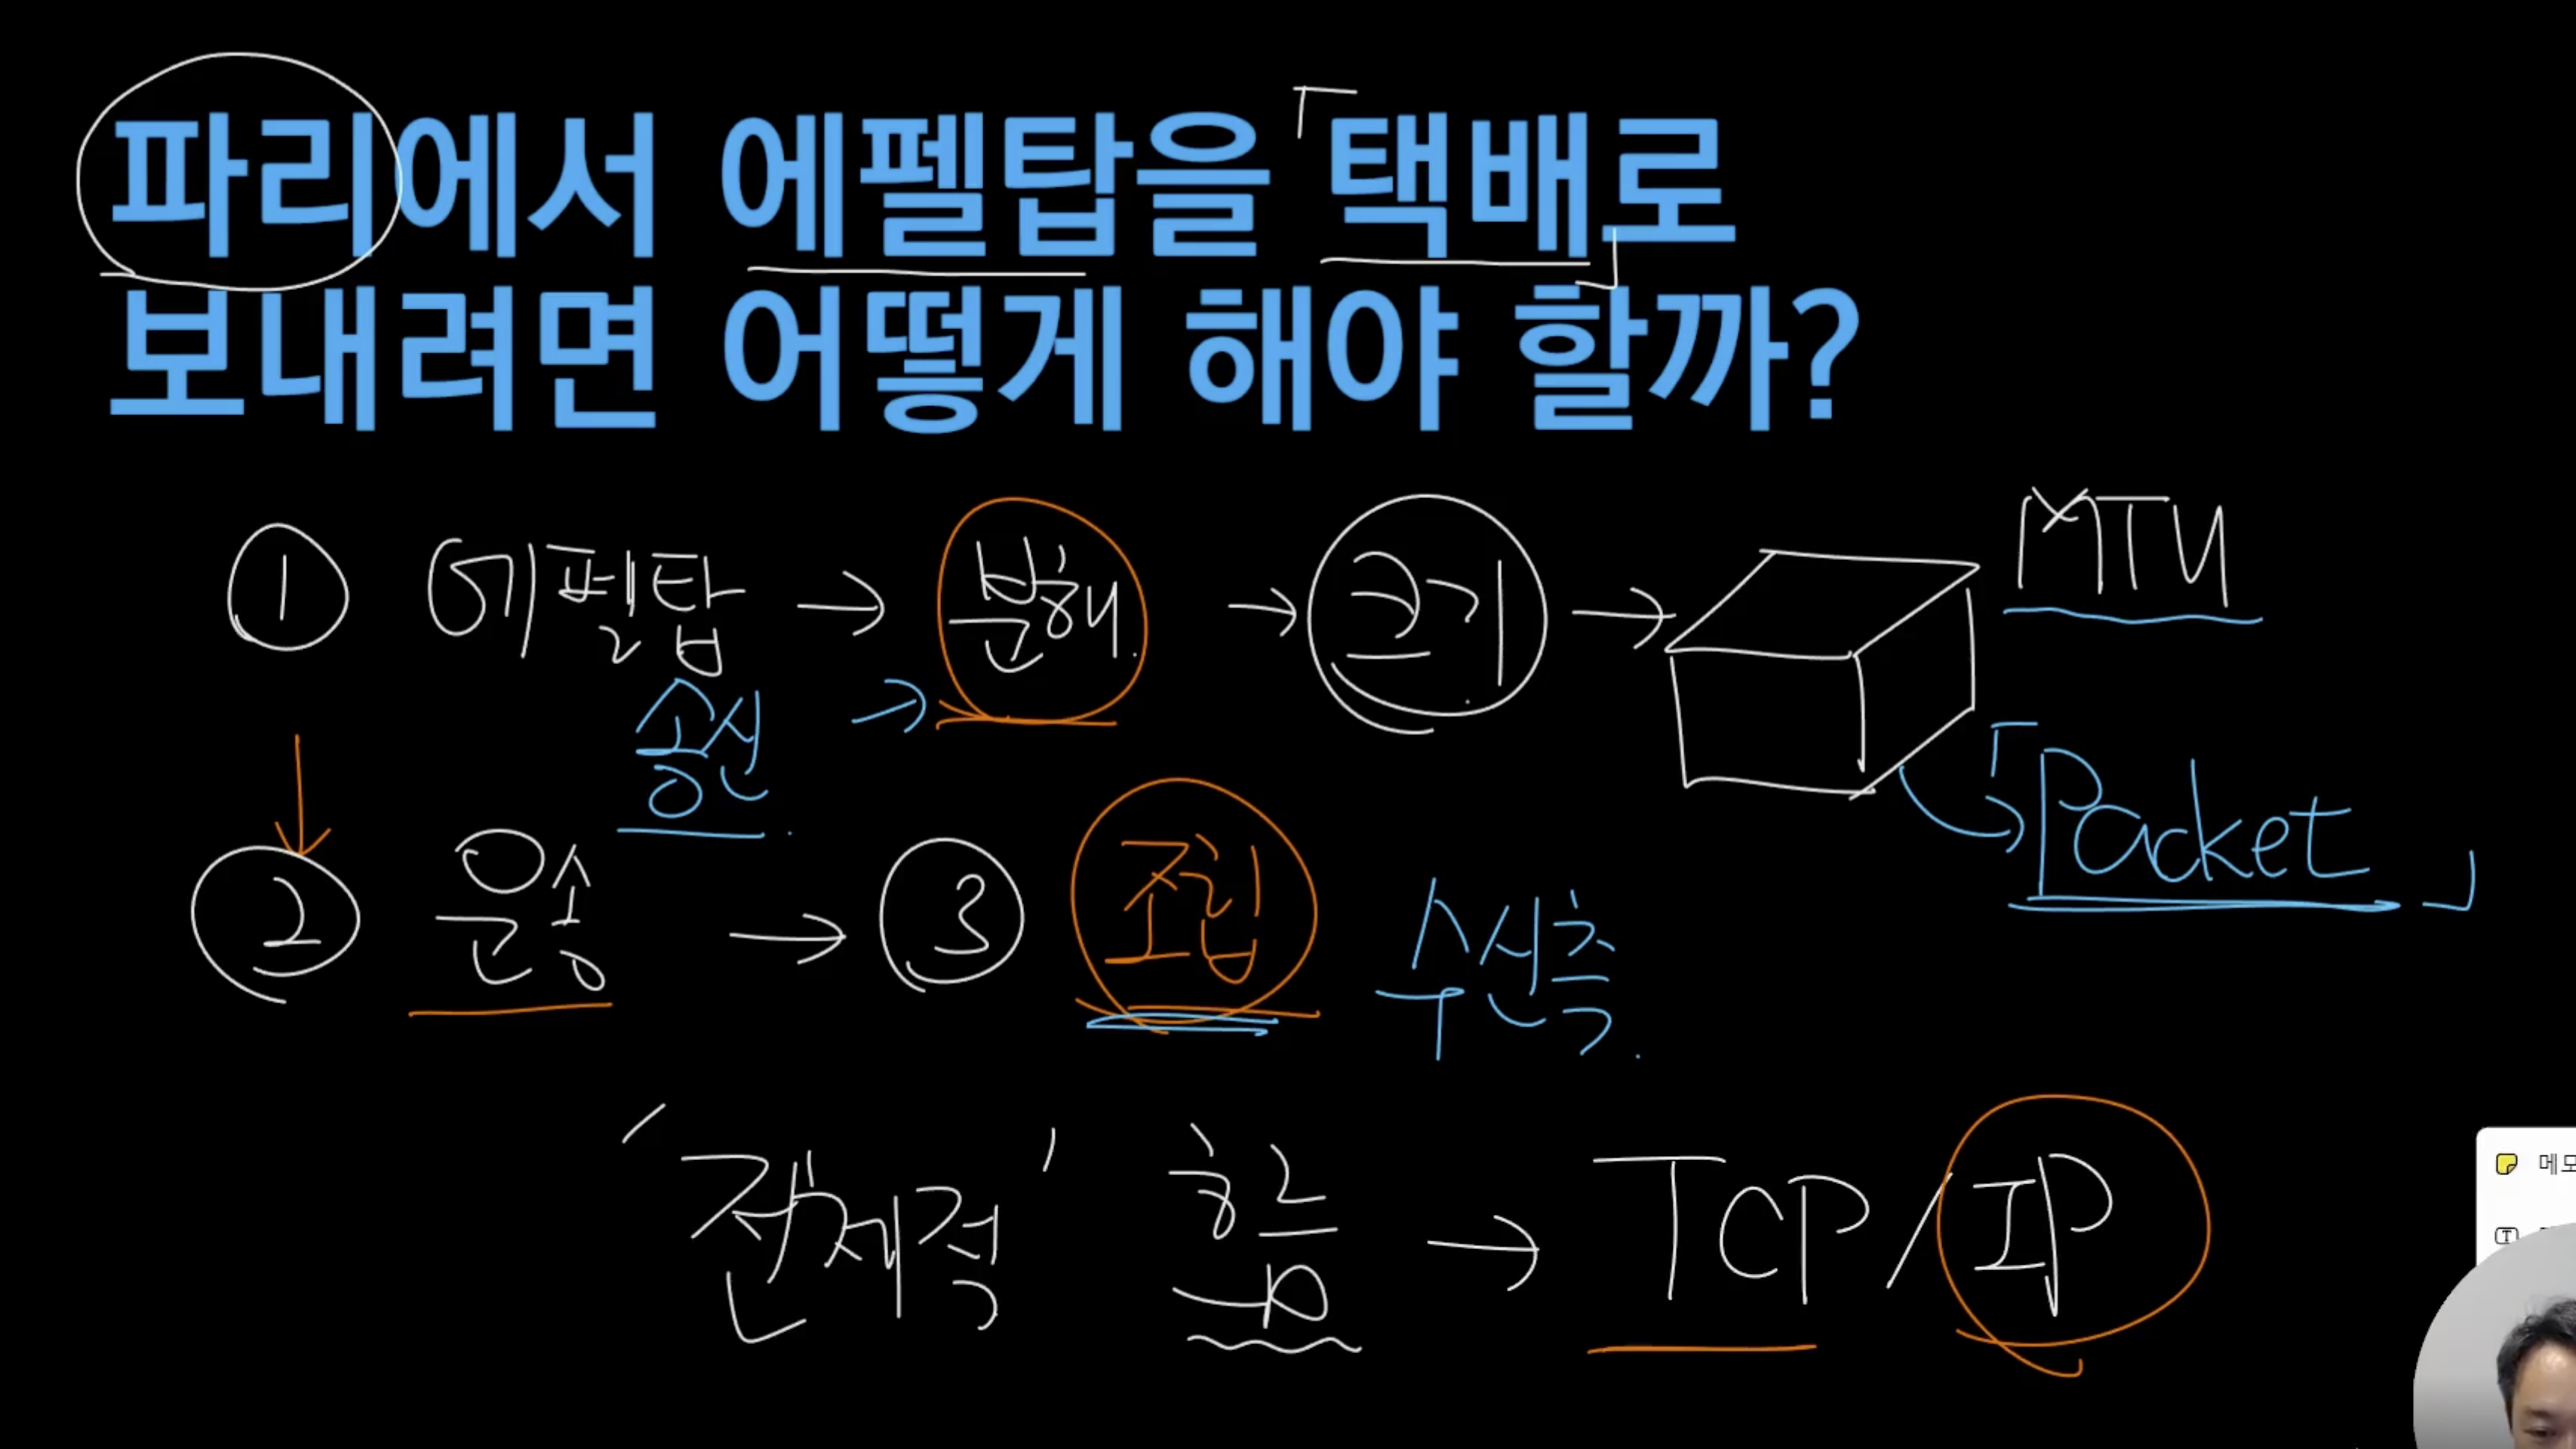 파리에서 에펠탑을 「택배」로
보내려면 어떻게 해야 할까?
① 에펠탑 → 분해 → 크기 → MTU
송신 →
「Packet」
② 운송 → ③ 조립 수신측.
'전체적' 흐름 → TCP/IP
메모